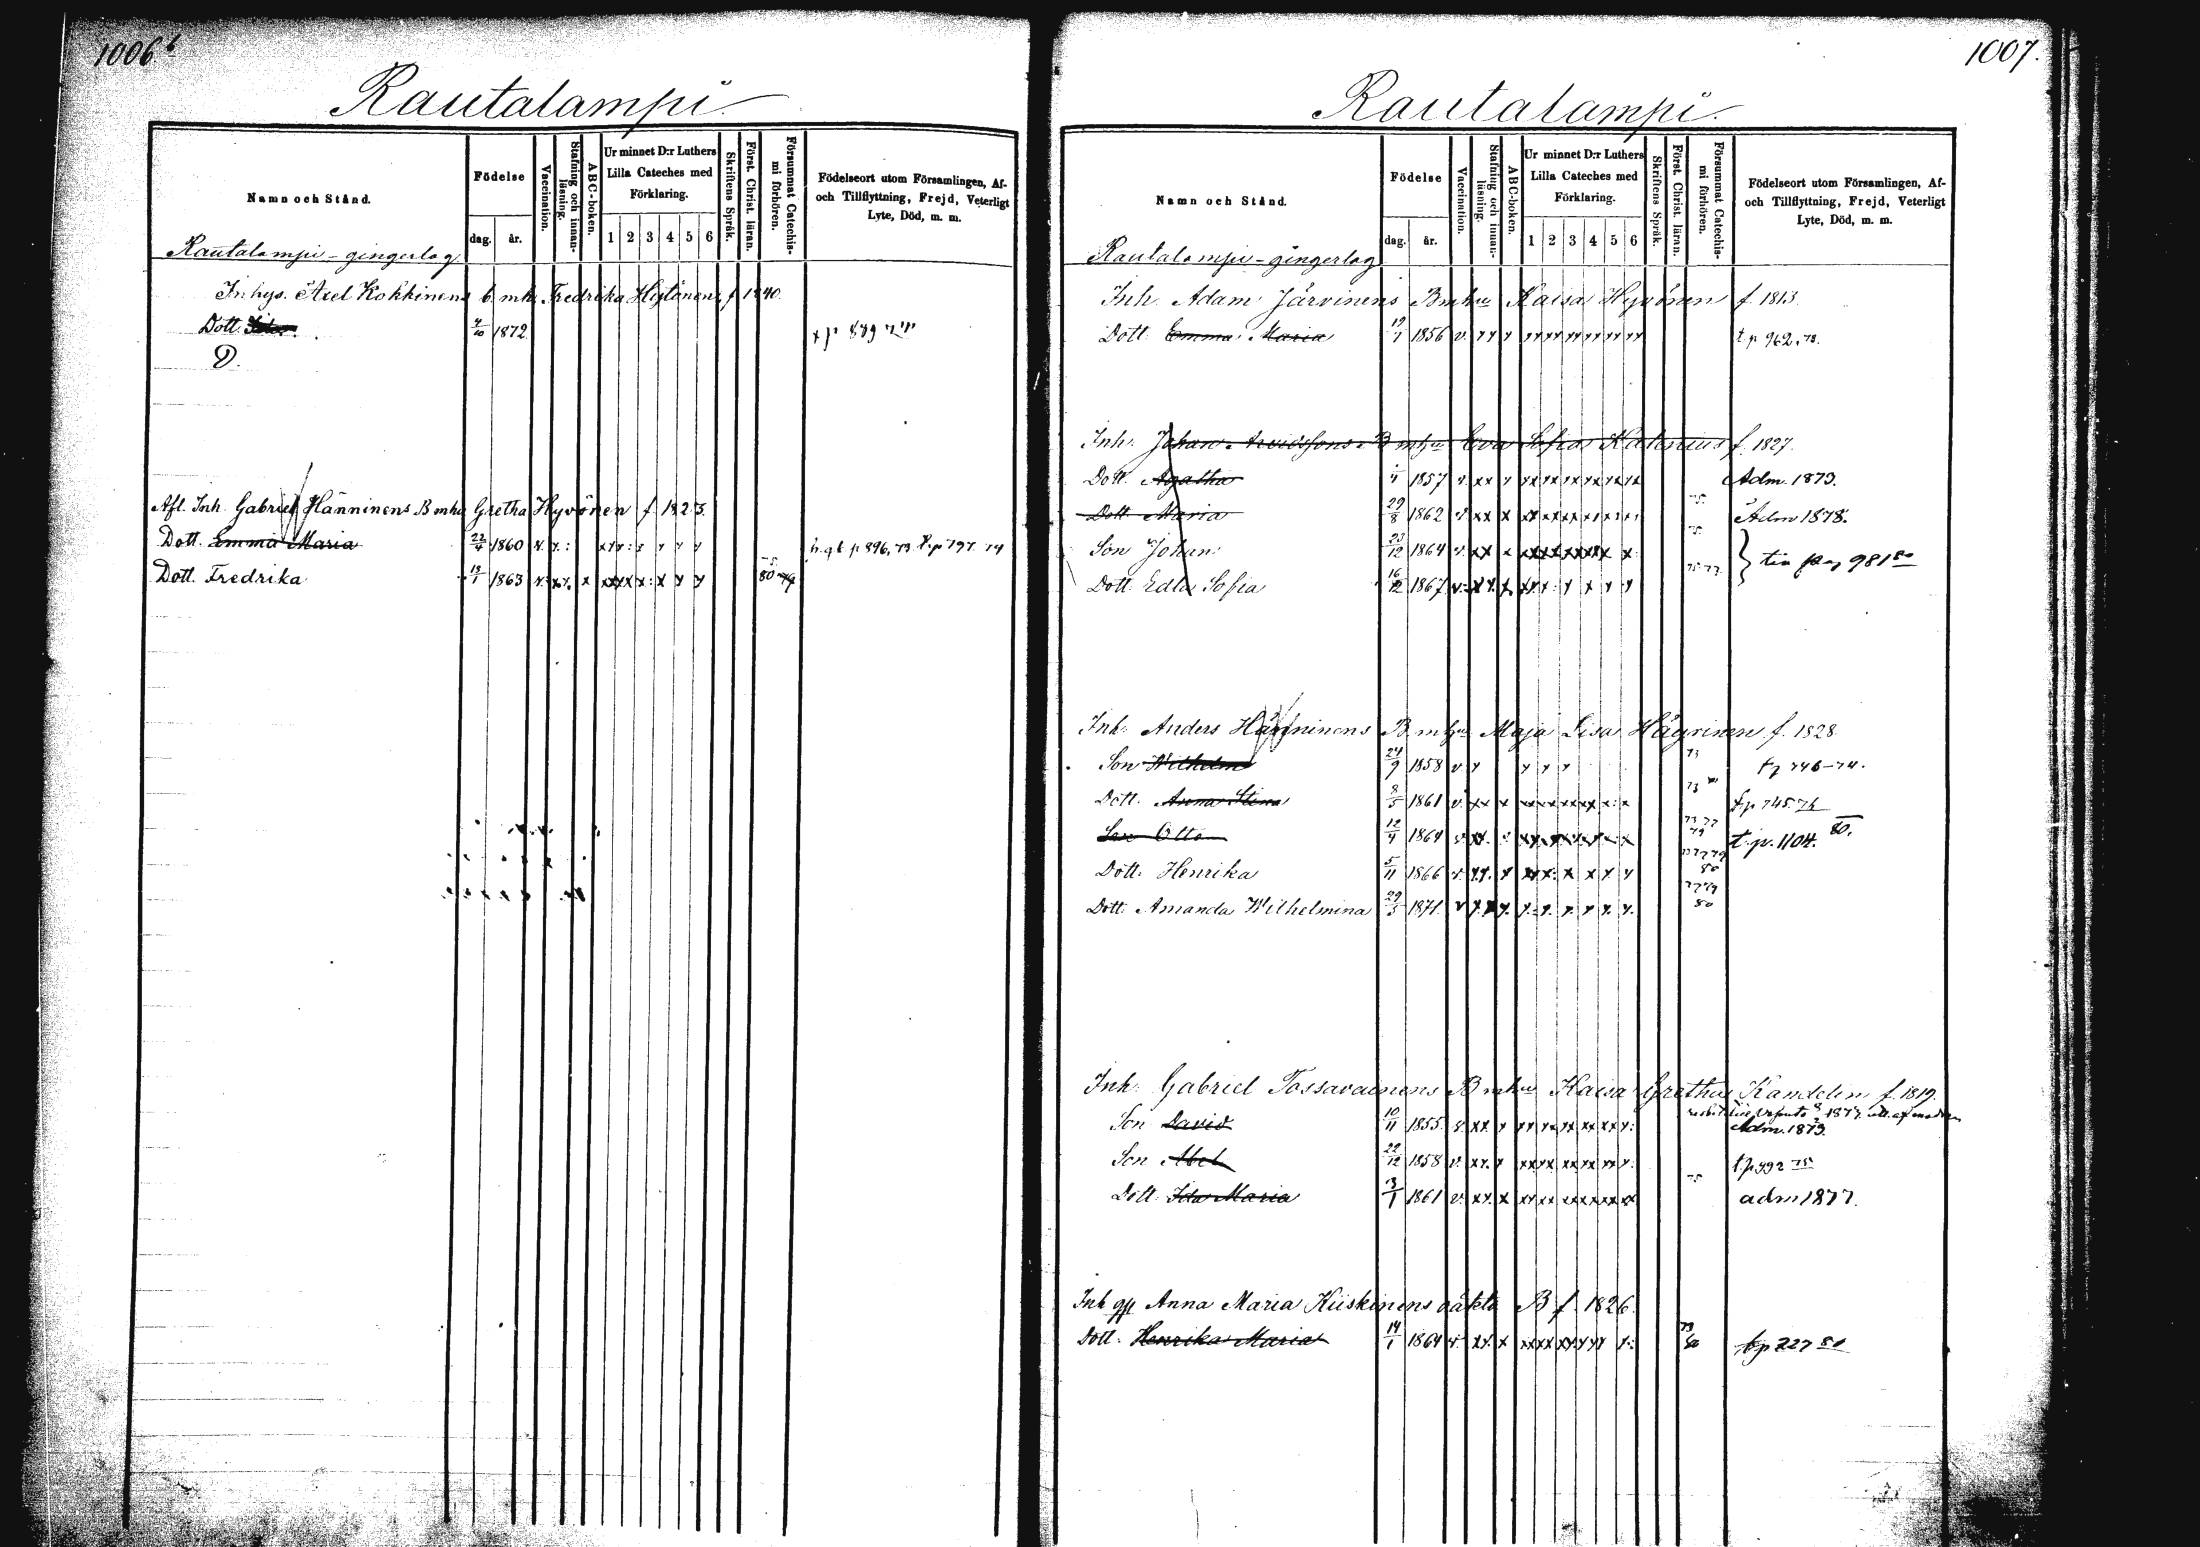 1006
Rautalampi
Namn och Stånd.
Födelse
dag.
år.
Vaccination.
Stafning och innan-
läsning.
ABC-boken.
Ur minnet D:r Luthers
Lilla Cateches med
Förklaring.
1 2 3 4 5 6
Skriftens Språk.
Först. Christ. läran.
Försummat Catechis-
mi förhören.
Födelseort utom Församlingen, Af-
och Tillflyttning, Frejd, Veterligt
Lyte, Död, m. m.
Rautalampi-gingerlag
Inhys. Axel Kokkinens b. mh. Fredrika Hytönen f 1840.
Dott. 1872
D.
Afl. Inh. Gabriel Hänninens B mhu Gretha Hyvönen f 1823.
Dott. Emma Maria 22/4 1860
Dott. Fredrika 13/1 1863 80
1007.
Rautalampi.
Namn och Stånd.
Födelse
dag.
år.
Vaccination.
Stafning och innan-
läsning.
ABC-boken.
Ur minnet D:r Luthers
Lilla Cateches med
Förklaring.
1 2 3 4 5 6
Skriftens Språk.
Först. Christ. läran.
Försummat Catechis-
mi förhören.
Födelseort utom Församlingen, Af-
och Tillflyttning, Frejd, Veterligt
Lyte, Död, m. m.
Rautalampi-gingerlag
Inh. Adam Järvinens B mhu Kaisa Hyvönen f. 1813.
Dott. Emma Maria 1856 v. t.p 962.78.
Inh. Johan B mhu Eva Sofia f. 1827.
Dott. Agatha 1857 Adm. 1873.
Dott. Maria 29/8 1862 Adm 1878.
Son Johan 23/12 1864
Dott. Edla Sofia 16/12 1867 981 80
Inh. Anders Hänninens B mhu Maja Lisa Häyrinen f. 1828
Son Wilhelm 24/9 1858 v 73 746-74.
Dott. Anna Stina 8/5 1861 v. 73 745
Son Otto 12/4 1864 t.p. 1104. 80.
Dott. Henrika 5/11 1866 80
Dott. Amanda Wilhelmina 29/5 1871 v 80
Inh. Gabriel Tossavainens B mhu Kaisa Gretha Kandelin f. 1819.
Son David 10/11 1855 Adm. 1873.
Son Abel 22/12 1858 v. t.p 992 75
Dott. Ida Maria 3/1 1861 v. adm 1877.
Inh Anna Maria Kiiskinens oäkta B f. 1826.
Dott. Henrika Maria 14/1 1864 227 80